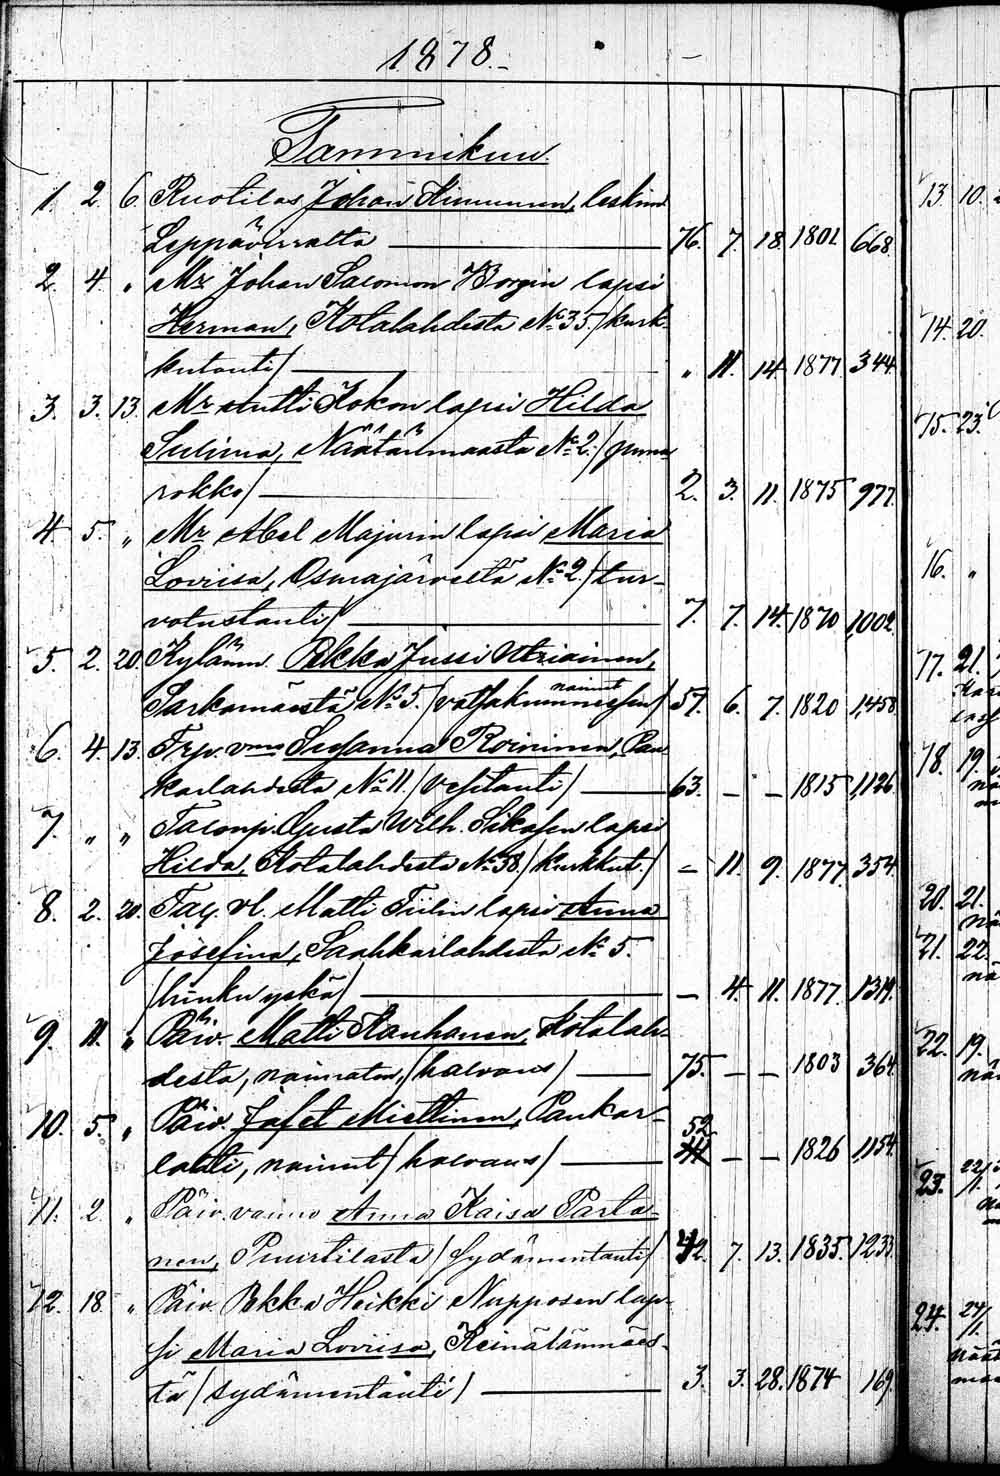 1878.
Tammikuu.
1. 2. 6. Ruotilas Johan Kinnunen, leskim.
Leppävirralta 76. 7. 18. 1801 668.
2. 4. " Mr. Johan Salomon Borgin lapsi
Herman, Kotalahdesta No 35. /kurk-
kutauti/ " 11. 14. 1877. 344
3. 3. 13. Mr. Antti Kokon lapsi Hilda
Sulima, Näätänmaasta No 2. /puna
rokko/ 2. 3. 11. 1875 977.
4. 5. " Mr. Abel Majurin lapsi Maria
Loviisa, Osmajärveltä No 2. /tur-
votustauti/ 7. 7. 14. 1870 1,002.
5. 2. 20. Kylänm. Pekka Jussi Utriainen,
nainut
Sarkamäestä No 5. 57. 6. 7. 1820 1,458.
6. 4. 13. Trp. vmo Susanna Roininen, Pau
karlahdesta No 11. /vesitauti/ 63. – – 1815 1,126.
7. " " Talonp. Gusta Wilh. Sikasen lapsi
Hilda, Kotalahdesta No 38. /kurkkut./ – 11. 9. 1877. 354.
8. 2. 20. Matti Tiilin lapsi Anna
Josefina, Saahkarlahdesta No 5.
/hinku yskä/ – 4. 11. 1877. 1314.
9. 11. " Päiv. Matti Kauhanen, Kotalah-
desta, naimaton, /halvaus/ 75. – – 1803 364.
10. 5. " Päiv. Jafet Miettinen, Paukar-
52.
lahti, nainut /halvaus/ – – 1826 1,154.
11. 2. " Päiv. vaimo Anna Kaisa Parta-
nen, Puurtilasta /sydämentauti/ 42. 7. 13. 1835. 1,233.
12. 18. " Päiv. Pekka Heikki Nupposen lap-
si Maria Loviisa, Keinälänmäes-
tä /sydämentauti/ 3. 3. 28. 1874 169.
13. 10.
14. 20.
15. 23.
16. "
17. 21.
18. 19.
20. 21.
21. 22.
nä
22. 19.
23. 22/1.
24. 27/1.